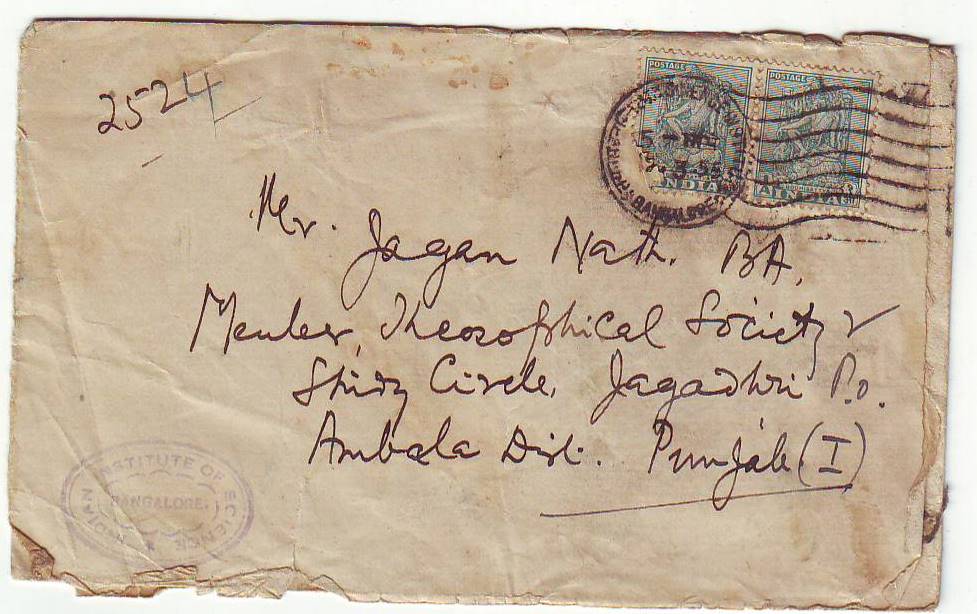 2524
POSTAGE POSTAGE
INDIA INDIA
BANGALORE
Mr. Jagan Nath. BA,
Member, Theosophical Society &
Study Circle, Jagadhri P.O.
Ambala Dist. Punjab (I)
INDIAN INSTITUTE OF SCIENCE
BANGALORE.